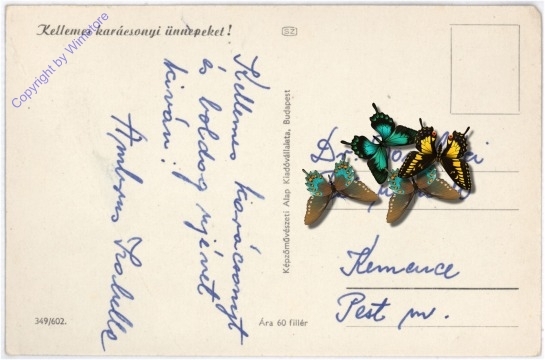 Kellemes karácsonyi ünnepeket!
SZ
Copyright by Winstore
Kellemes karácsonyt
és boldog újévet
kiván!
Ambrus Izabella
Képzőművészeti Alap Kiadóvállalata, Budapest
Dr.
Kemence
Pest m.
349/602.
Ára 60 fillér